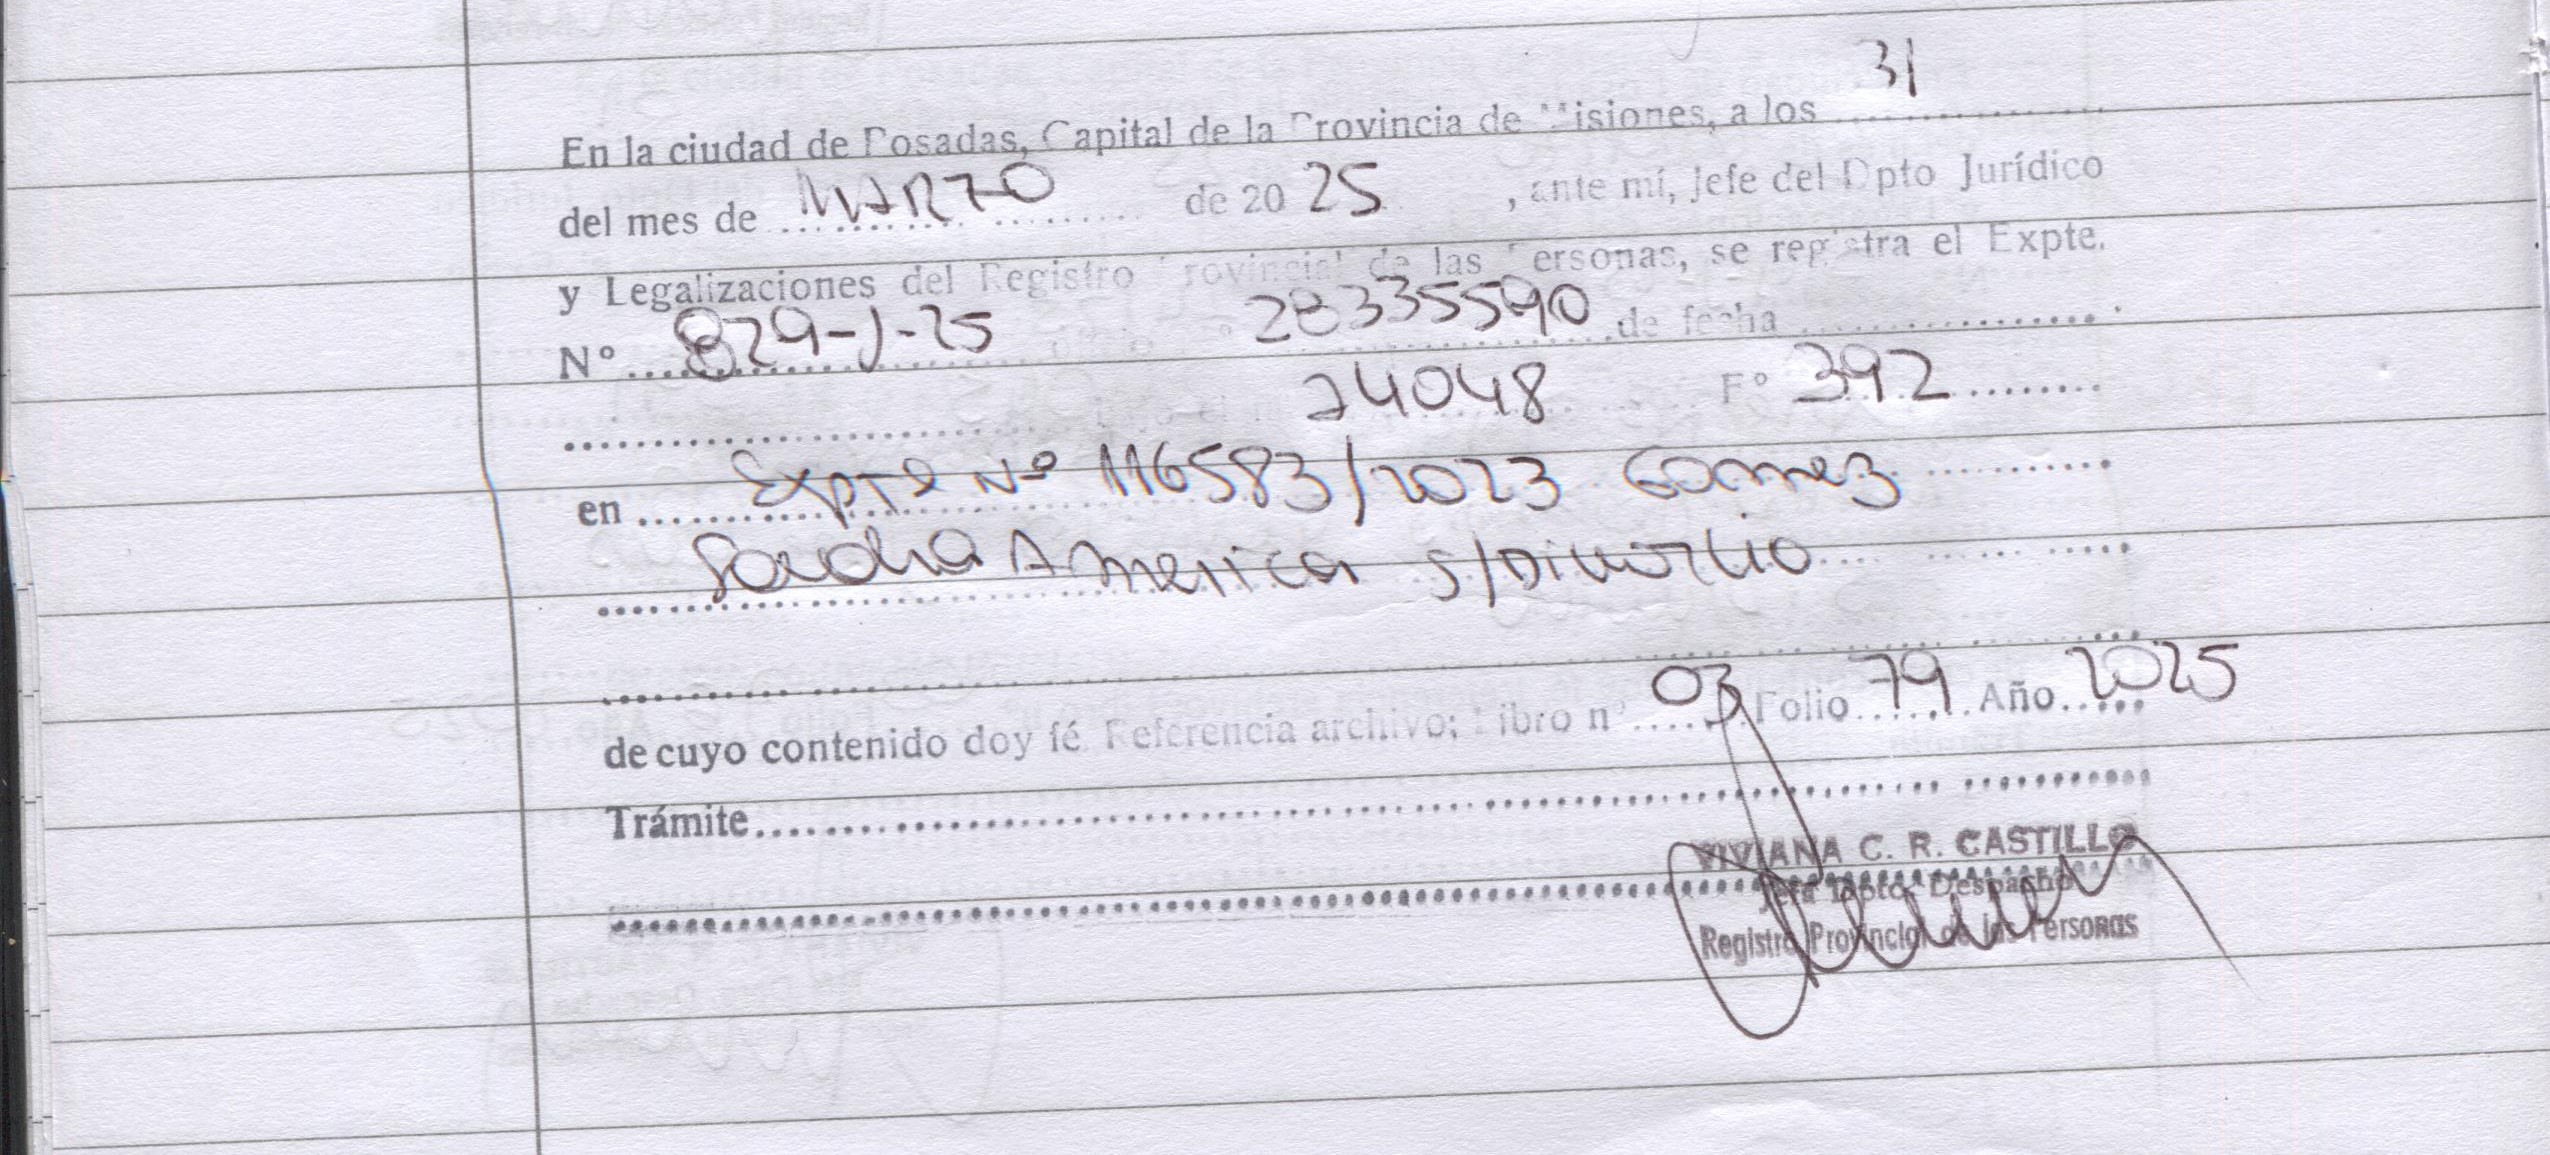 En la ciudad de Posadas, Capital de la Provincia de Misiones, a los 31
del mes de MARZO de 20 25, ante mí, Jefe del Dpto Jurídico
y Legalizaciones del Registro Provincial de las Personas, se registra el Expte.
Nº 829-J-25 oficio nº 28335590 de fecha
24048 Fº 392
en Expte Nº 116583/2023 Gomez
Sandra America S/Divorcio
de cuyo contenido doy fé Referencia archivo; Libro nº 03 Folio 79 Año 2025
Trámite
VIVIANA C. R. CASTILLO
Jefa Dpto. Despacho
Registro Provincial de las Personas